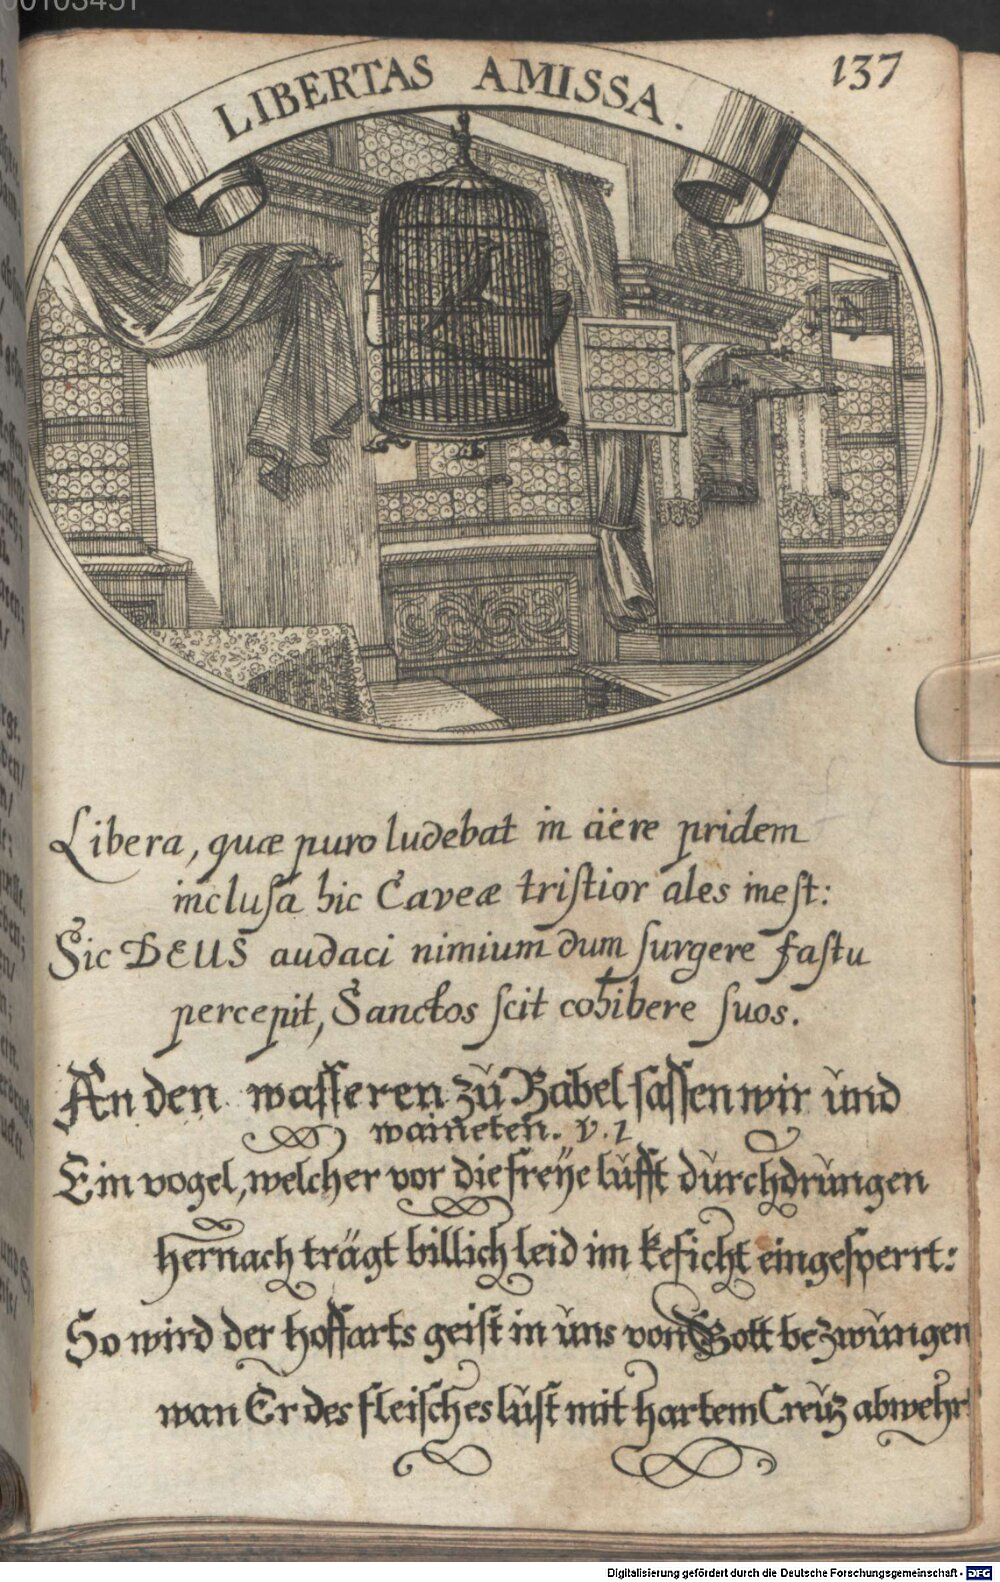 137
LIBERTAS AMISSA.
Libera, quæ puro ludebat in äëre pridem
inclusa hic Caveæ tristior ales inest:
Sic DEUS audaci nimium dum surgere fastu
percepit, Sanctos scit cohibere suos.
An den wasseren zŭ Babel sassen wir ŭnd
waineten. v. 1
Ein vogel, welcher vor die freÿe lŭfft dŭrchdrŭngen
hernach trägt billich leid im keficht eingesperrt:
So wird der hoffarts geist in ŭns von Gott bezwŭngen
wan Er des fleisches lŭst mit hartem Creŭz abwehr
Digitalisierung gefördert durch die Deutsche Forschungsgemeinschaft - DFG